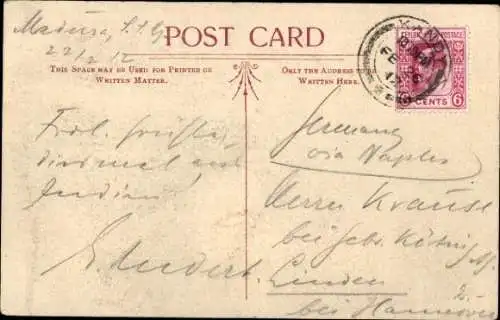 Madura, S. I.
22/2 12
POST CARD
THIS SPACE MAY BE USED FOR PRINTED OR
WRITTEN MATTER.
ONLY THE ADDRESS TO BE
WRITTEN HERE.
KANDY
CEYLON POSTAGE
6 CENTS 6
Frdl. Grüße
diesmal aus
Indien!
Germany
via Naples
Herrn Krause
bei Gebr. König
Linden
bei Hannover